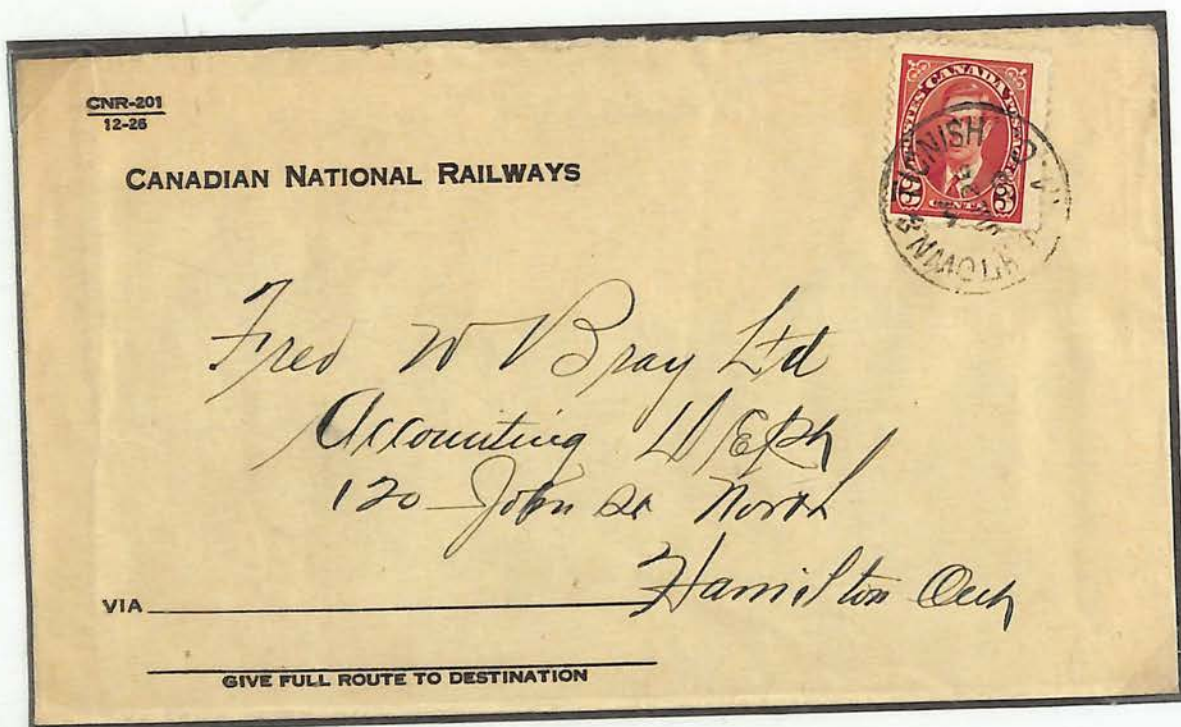 CNR-201
12-26
CANADIAN NATIONAL RAILWAYS
POSTES CANADA POSTAGE
3 CENTS 3
TIGNISH
TOWN
Fred W Bray Ltd
Accounting Dept
120 John St North
Hamilton Ont
VIA
GIVE FULL ROUTE TO DESTINATION